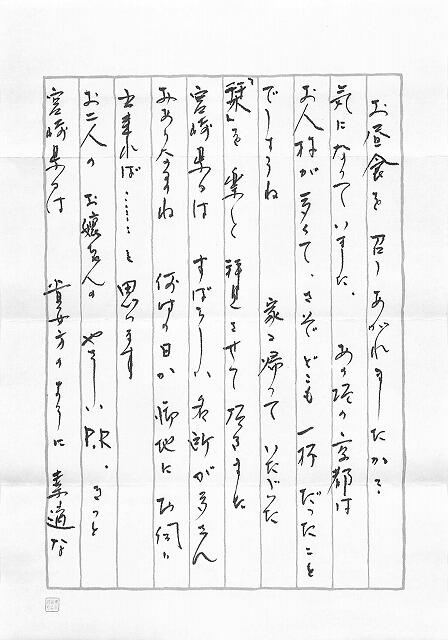 お昼食を召しあがれましたか？
気になっていました。　あの頃の京都は
お人様が多くて、さぞどこも一杯だったこと
でしょうね　　家に帰っていただいた
「栞」を楽しく拝見させて頂きました
宮崎県には　すばらしい名所が多さん
おありなのですね　何時の日か御地にお伺い
出来れば……と思います
お二人のお嬢さんのやさしいP.R.きっと
宮崎県には　貴女方のように素適な